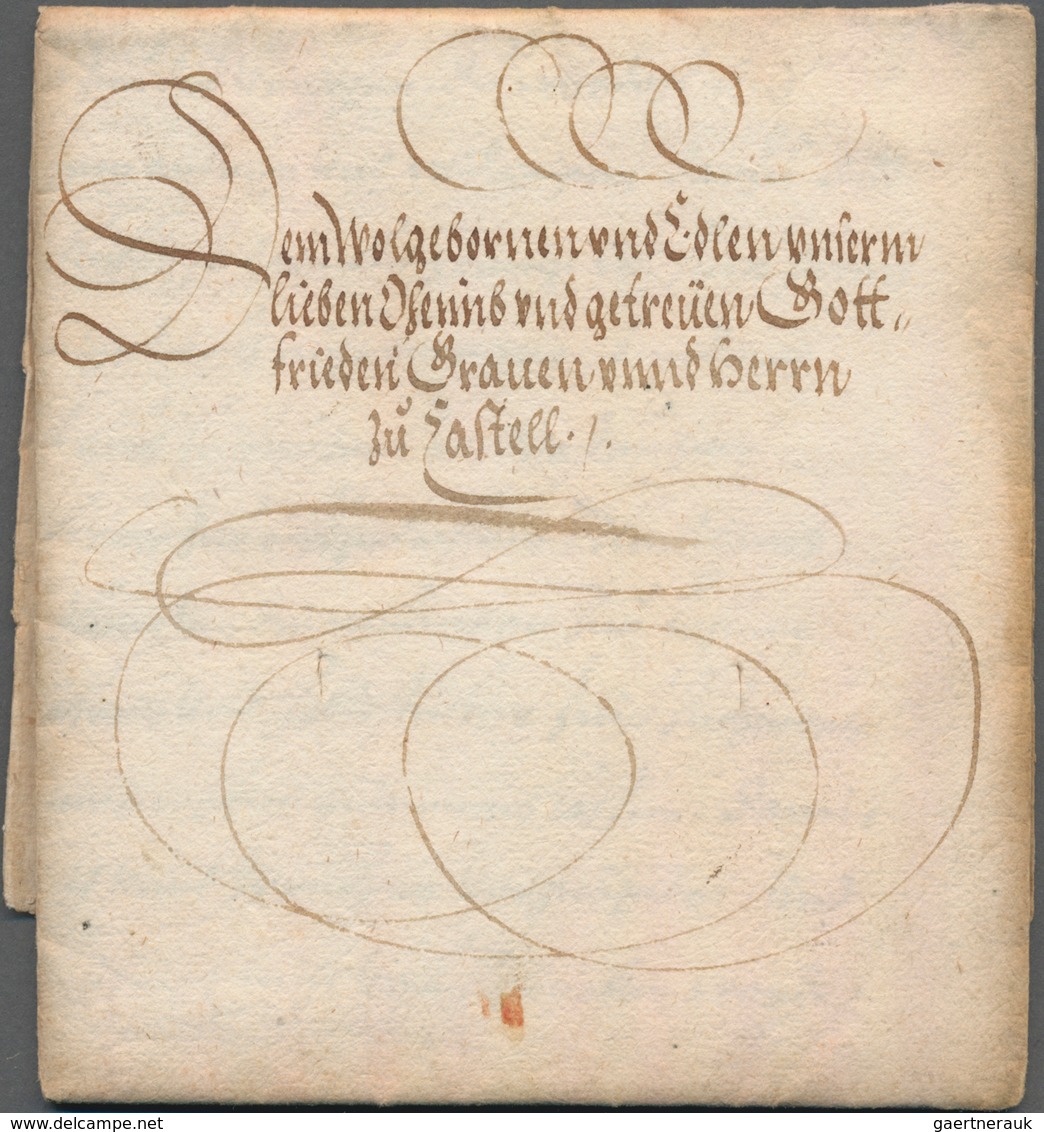 Dem Wolgebornen vnd Edlen vnserm
lieben Oheimb vnd getreüen Gott„
frieden Grauen vnnd Herrn
zů Castell ./.
delcampe.net
gaertnerauk